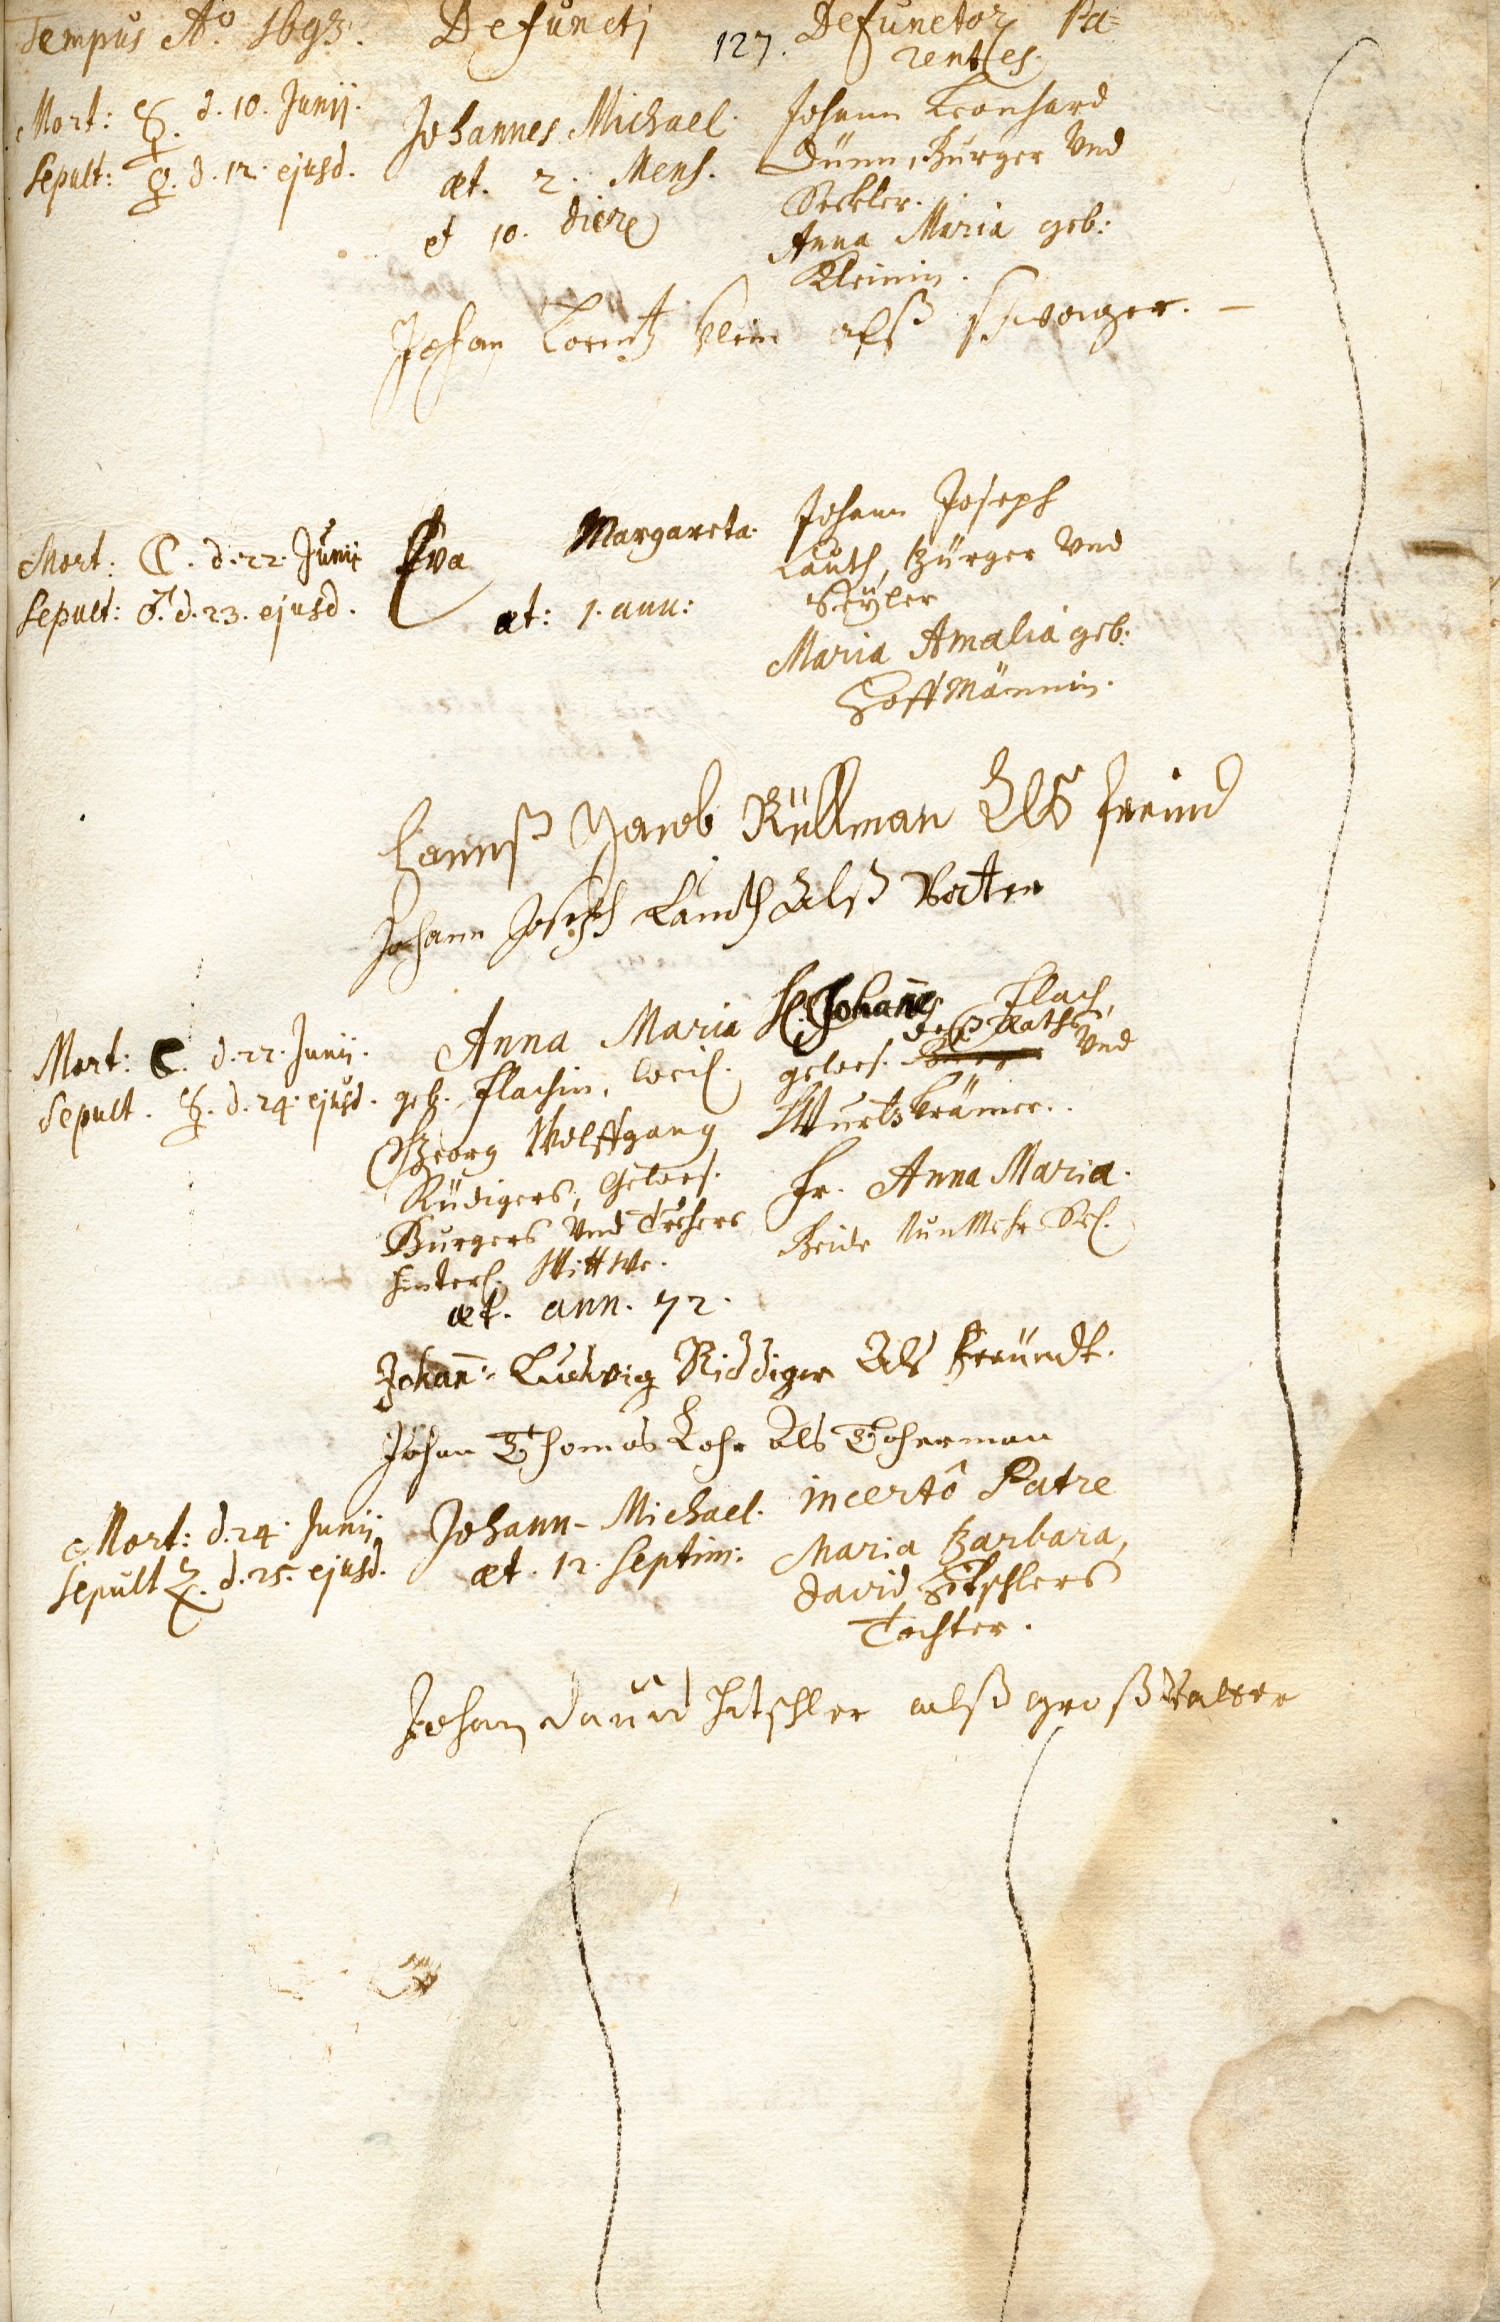 Tempus Aº 1693.
Defuncti
127.
Defunctor Pa=
rentes.
Mort: ☿. d. 10. Junij.
Sepult: ♀. d. 12. ejusd.
Johannes Michael.
æt. 2. Mens.
et 10. dier
Johann Leonhard
Dünn, Burger Vnd
Seckler.
Anna Maria geb:
Kleinin.
Johan Lorentz Klein alß schwager. –
Mort: ☾. d. 22. Junij
Sepult: ♂. d. 23. ejusd.
Eva Margareta.
æt: 1. ann:
Johann Joseph
Lauth, Bürger Vnd
Seyler
Maria Amalia geb.
Hoffmännin.
Hannß Jacob Rüllman Alß freind
Johann Joseph Lauth Alß Vatter
Mort: ☾. d. 22. Junij.
Sepult. ☿. d. 24. ejusd.
Anna Maria
geb. Flachin, weil.
Georg Wolffgang
Rüdigers, Gewes.
Burgers Vnd
hinterl. Wittwe.
æt. ann. 72.
H. Johannes Flach,
deß Raths
gewes. Vnd
Wurtzkrämer.
Fr. Anna Maria.
Beide Nunmehr Sel.
Johann: Ludwig Riddiger Als freündt.
Johan Thomas Lohr Als Tohterman
Mort: d. 24. Junij.
Sepult ♃. d. 25. ejusd.
Johann-Michael.
æt. 12. Septim:
incertô Patre
Maria Barbara,
David Hitschlers
Tochter.
Johan Dauid Hitschler alß großvatter